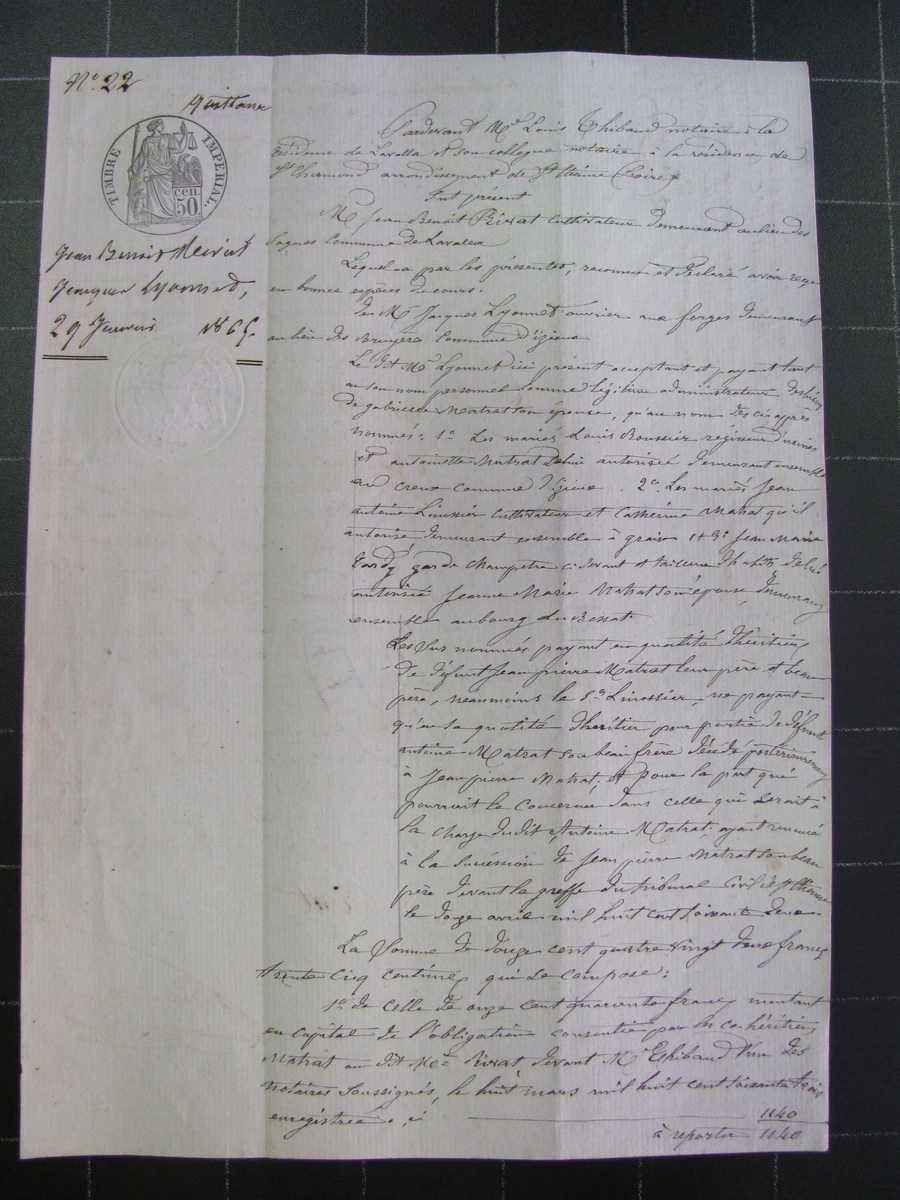 N° 22
quittance
TIMBRE IMPERIAL
50 cen.
Jean Benoit
Jacques Lyonnet,
29 Janvier 1865.
Pardevant Me Louis Thibaud notaire à la
résidence de Lavalla et son collegue notaire à la résidence de
St Chamond arrondissement de St Etienne (Loire)
Fut présent
M Jean Benoit Rivat cultivateur demeurant au lieu des
Sagnes Commune de Lavalla
Lequel a par les présentes, reconnu et déclaré avoir reçu
en bonnes espèces de cours.
de M Jacques Lyonnet ouvrier aux forges demeurant
au lieu des Bruyera Commune d'izieux
Le dit Mr Lyonnet ici présent acceptant et payant tant
en son nom personnel comme légitime administrateur des biens
de gabrielle Matrat son épouse, qu'au nom des ci après
nommés: 1° Les mariés Louis Roussier régisseur d'usines
et antoinette Matrat de lui autorisée demeurant ensemble
au creux commune d'izieux . 2° Les mariés Jean
antoine Linossier cultivateur et Catherine Matrat qu'il
autorise demeurant ensemble à graix et 3° Jean Marie
Tardy garde champetre ci devant et tailleur d'habits de lui
autorisée Jeanne Marie Matrat son épouse, demeurant
ensemble au bourg du Bessat.
Les sus nommés payant en qualité d'héritiers
de défunt Jean pierre Matrat leur père et beau
père, néanmoins le Sr Linossier, ne payant
qu'en sa qualité d'héritier pour partie de défunt
antoine Matrat son beau frère décédé postérieurement
à Jean pierre Matrat; et pour la part qui
pourrait le concerner dans celle qui serait à
la charge dudit Antoine Matrat; ayant renoncé
à la succession de Jean pierre Matrat son beau
père devant la greffe du tribunal Civil de St Etienne
le douze avril mil huit cent soixante deux
La Somme de douze cent quatre vingt deux francs
trente cinq centimes qui se compose:
1° de celle de onze cent quarante francs montant
en capital de l'obligation consentie par les co-héritiers
Matrat au dit Rivat devant Me Thibaud l'un des
notaires soussignés, le huit mars mil huit cent soixante trois
enregistrée, ci 1140
à reporter 1140